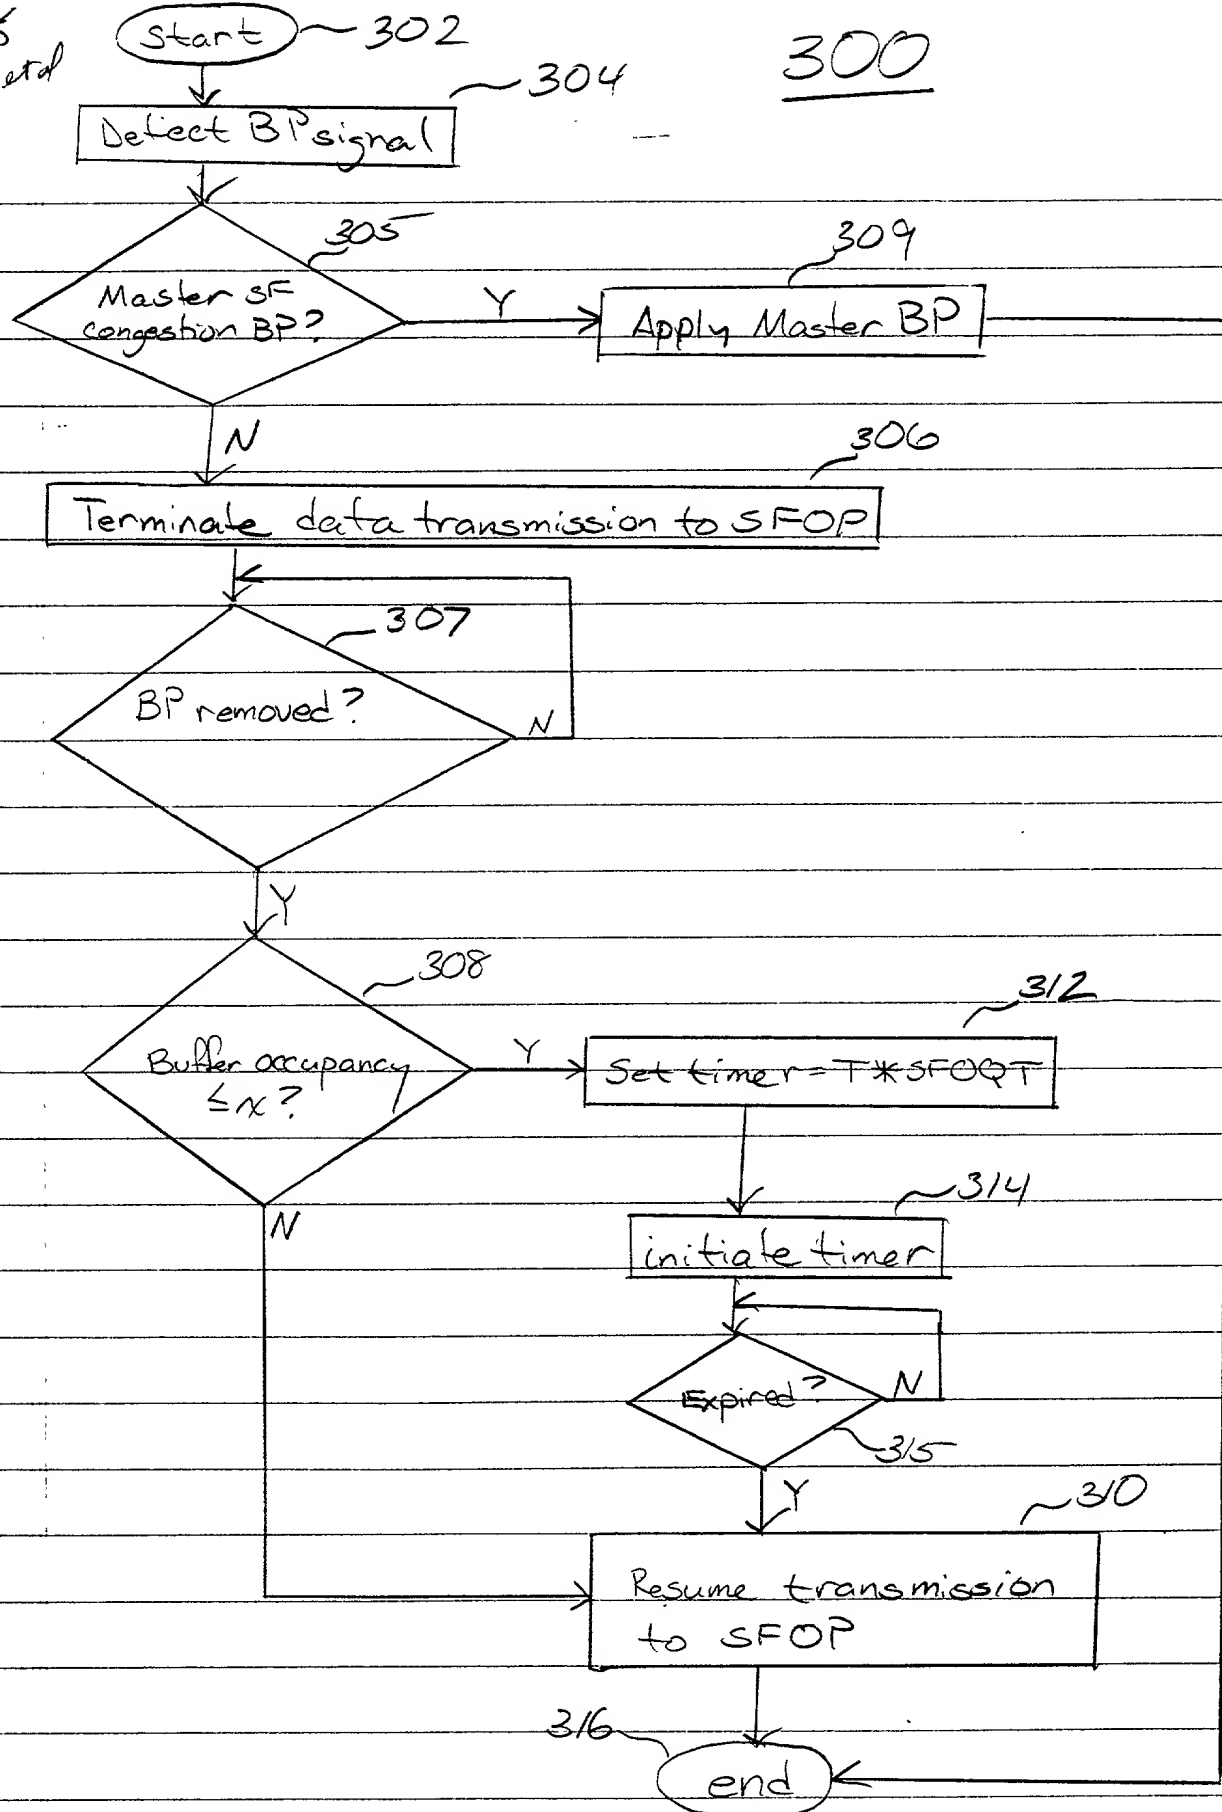 et al
start 302
300
304
Detect BP signal
305
Master SF
congestion BP?
Y
309
Apply Master BP
N
306
Terminate data transmission to SFOP
307
BP removed?
N
Y
308
Buffer occupancy
≤ x?
Y
312
Set timer = T*SFOQT
314
initiate timer
N
Expired?
N
315
Y
310
Resume transmission
to SFOP
316
end